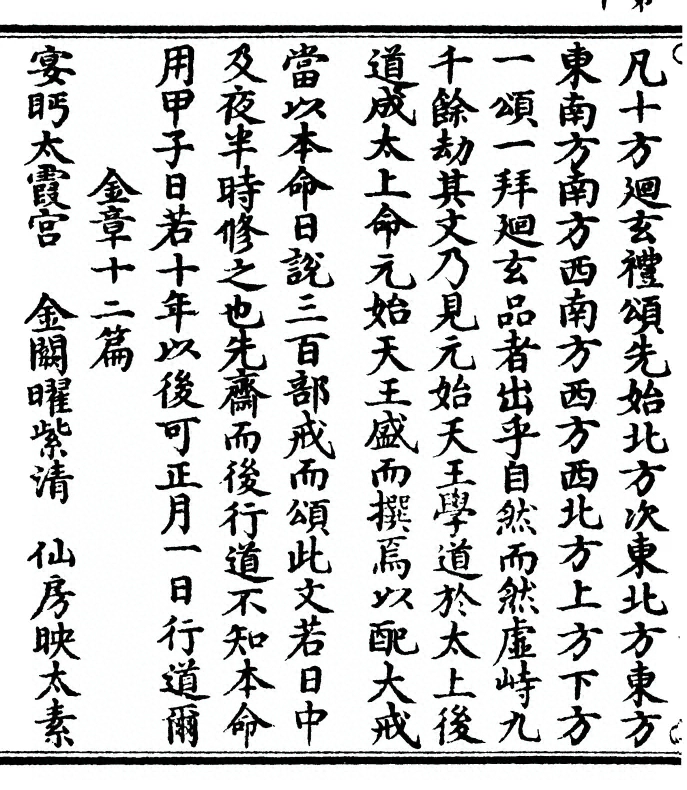 凡十方廻玄禮頌先始北方次東北方東方
東南方南方西南方西方西北方上方下方
一頌一拜廻玄品者出乎自然而然虛峙九
千餘劫其文乃見元始天王學道於太上後
道成太上命元始天王盛而撰焉以配大戒
當以本命日說三百部戒而頌此文若日中
及夜半時修之也先齋而後行道不知本命
用甲子日若十年以後可正月一日行道爾
金章十二篇
宴眄太霞宮　金闕曜紫清　仙房映太素